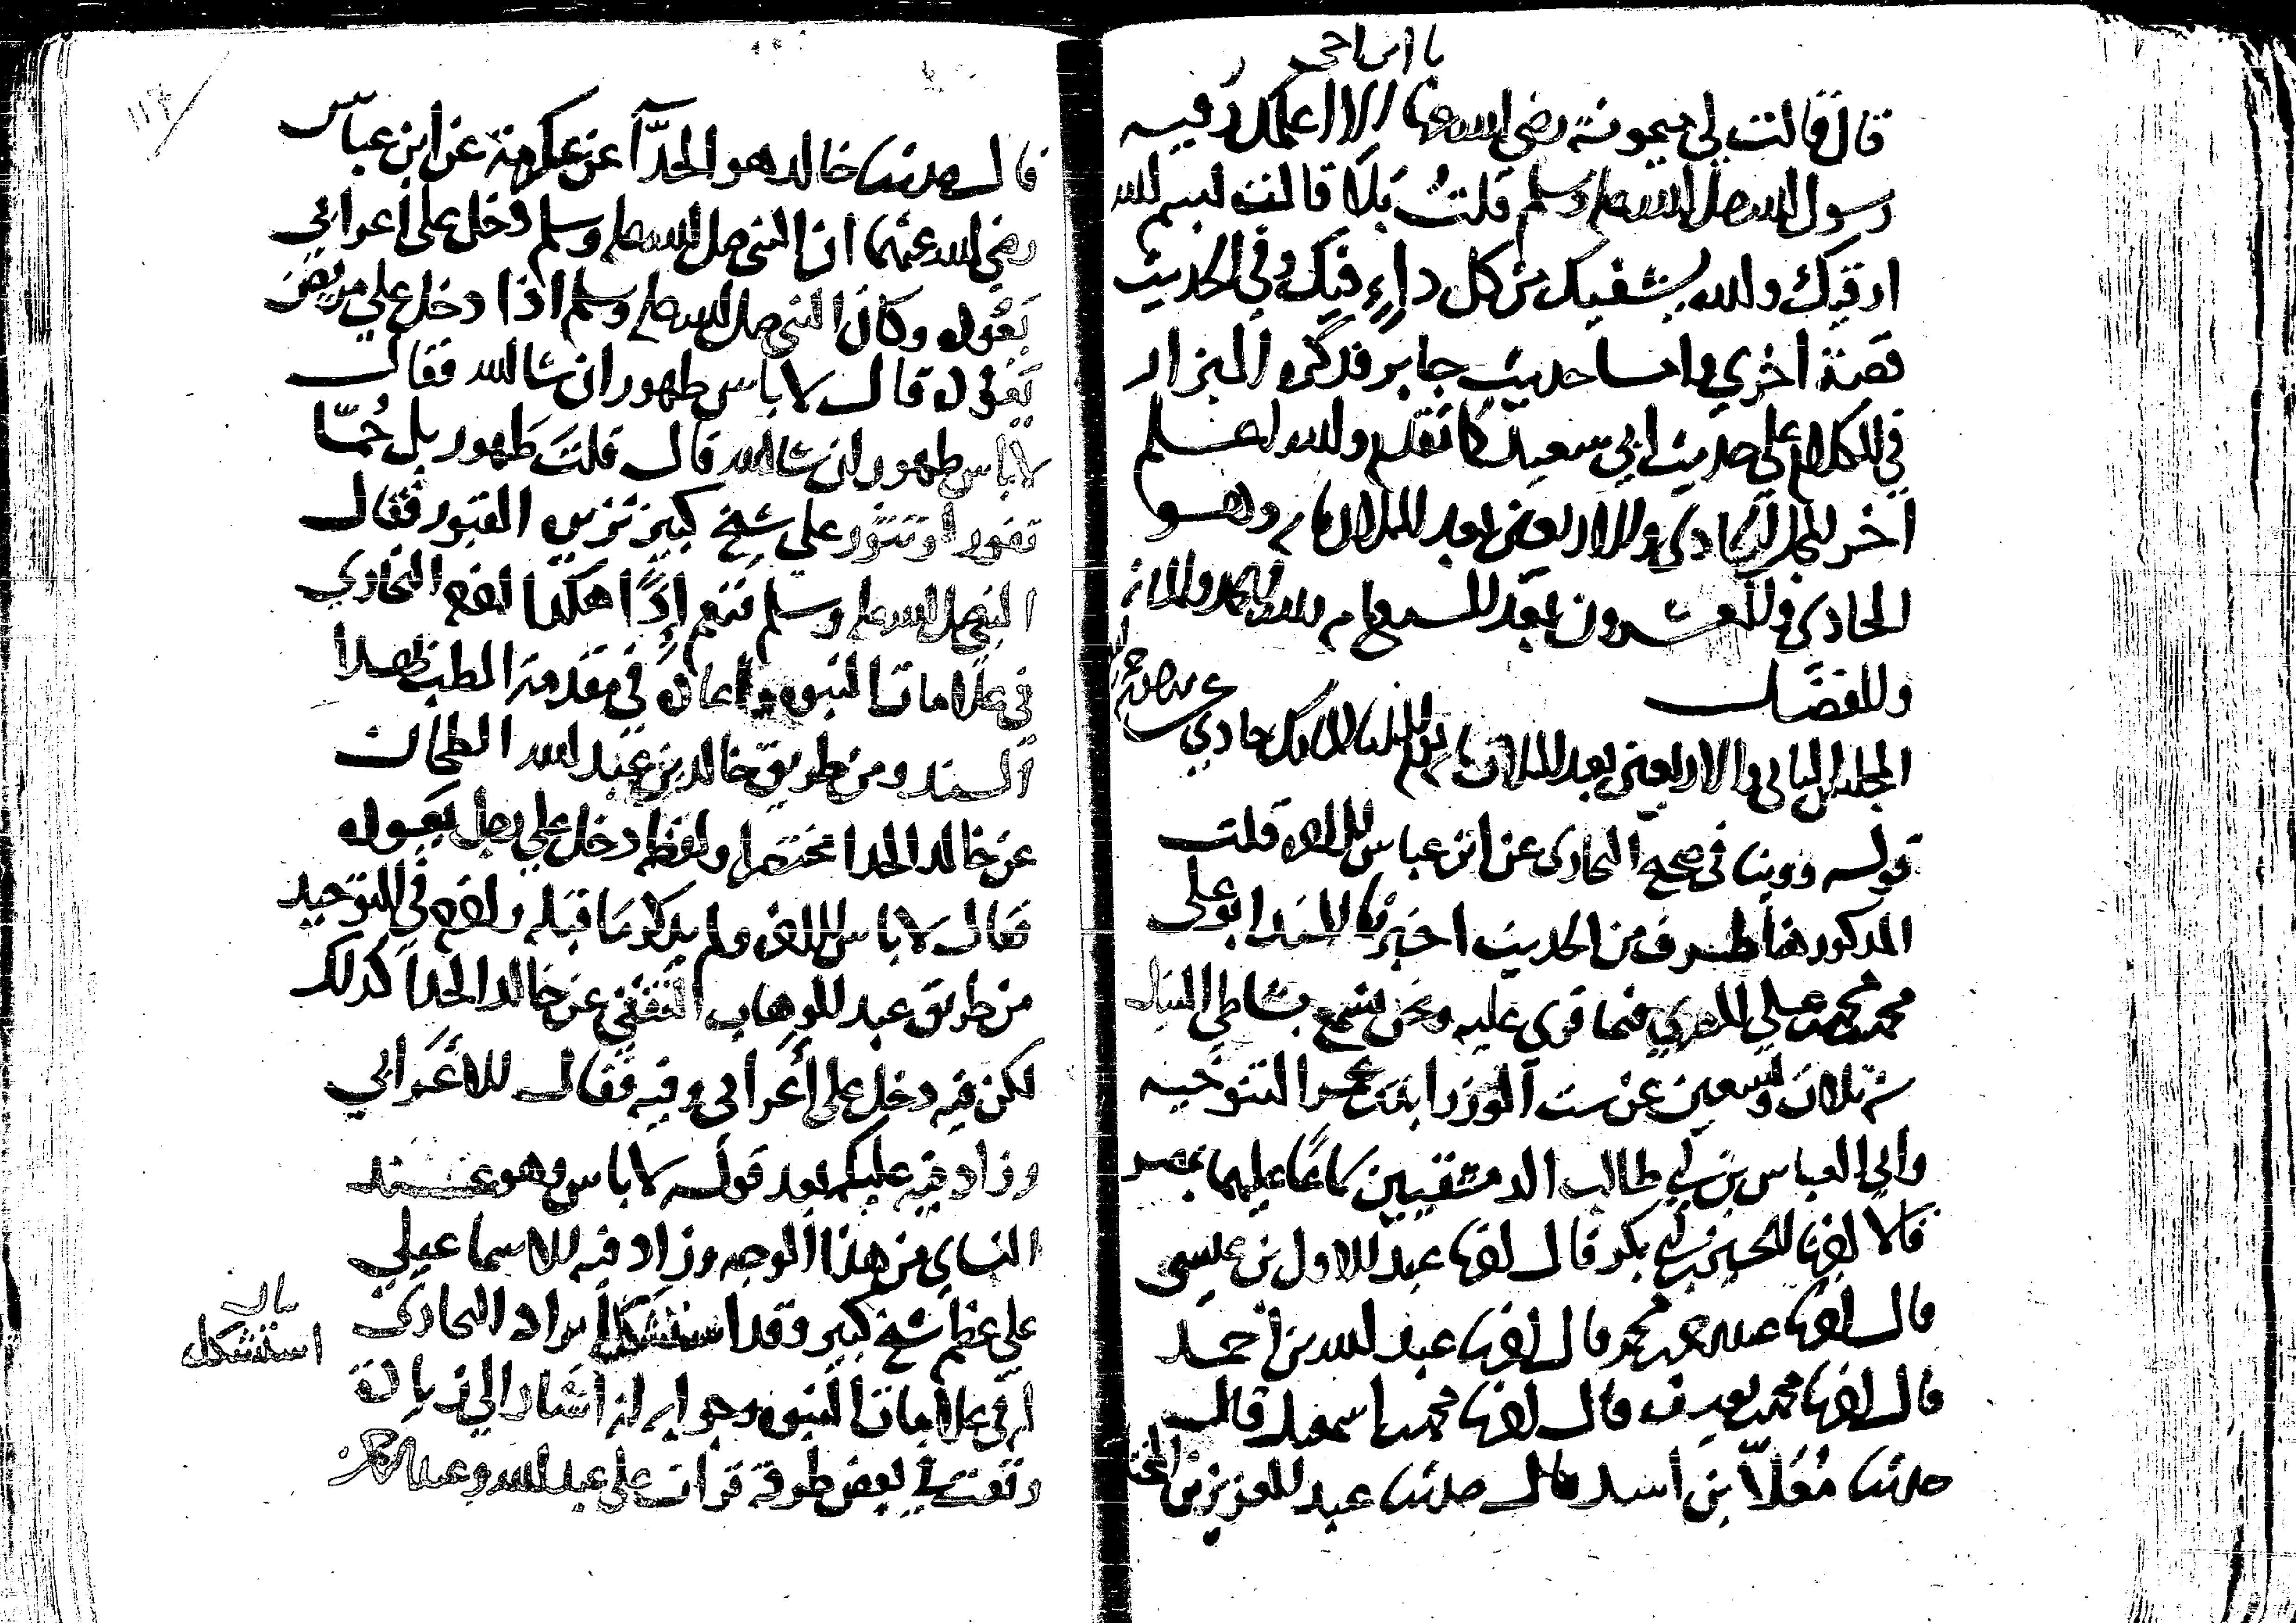 يا ابن اخي
قال قالت لي ميمونة رضي الله عنها الا اعلمك رقية
رسول الله صلى الله عليه وسلم قلتُ بَلَا قالت بسم الله
ارقيك والله يشفيك من كل داءٍ فيك وفي الحديث
قصة اخري واما حديث جابر فذكره البزار
في الكلام على حديث ابي سعيد كما تقدم والله اعلم
اخر المجلس الحادي والاربعين بعد الثلاثمائة وهو
الحادي والعشرون بعد السبعمائة
والفضل
المجلس الثاني والاربعين بعد الثلاثمائة حادي
قوله وروينا في صحيح البخاري عن ابن عباس قلت
المذكور هنا طرف من الحديث اخبرنا ابو علي
محمد بن محمد بن علي فيما قري عليه ونحن نسمع بشاطي النيل
سنة ثلاث وتسعين عن ست الوزرا بنت عمر التنوخية
وابي العباس بن ابي طالب الدمشقيين سماعًا عليهما بمصر
قالا اخبرنا الحسين بن ابي بكر قال اخبرنا عبد الاول بن عيسى
قال اخبرنا عبد الرحمن بن محمد قال اخبرنا عبد الله بن احمد
قال اخبرنا محمد بن يوسف قال اخبرنا محمد بن اسمعيل قال
حدثنا مُعَلّا بن اسد قال حدثنا عبد العزيز بن المختار
قال حدثنا خالد هو الحذّآ عن عكرمة عن ابن عباس
رضي الله عنهما ان النبي صلى الله عليه وسلم دخل على أعرابي
يعوده وكان النبي صلى الله عليه وسلم اذا دخل علي مريض
يعوده قال لا باس طهور ان شا الله فقال
لا باس طهور ان شا الله قال قلتَ طَهور بل حُمّا
تفور او تثور علي شيخ كبير تزيره القبور فقال
النبي صلى الله عليه وسلم فنعم إذًا هكذا البخاري
في علامات النبوة واعاده في مقدمة الطب بهذا
السند ومن طريق خالد بن عبد الله الطحان
عن خالد الحذا مختصرا ولفظه دخل علي رجل يعوده
فقال لا باس ولم يذكر ما قبله في التوحيد
من طريق عبد الوهاب الثقفي عن خالد الحذا كذلك
لكن فيه دخل على أعرابي وفيه فقال الاعرابي
وزاد فيه عليك بعد قوله لا باس وهو عند
النساي من هذا الوجه وزاد فيه الاسماعيلي
علي شيخ كبير وقد استشكل ايراد البخاري
له في علامات النبوة وجوابه انه اشار الي زيادة
وقعت في بعض طرقه قرات على عبد الله
بيان
استشكل